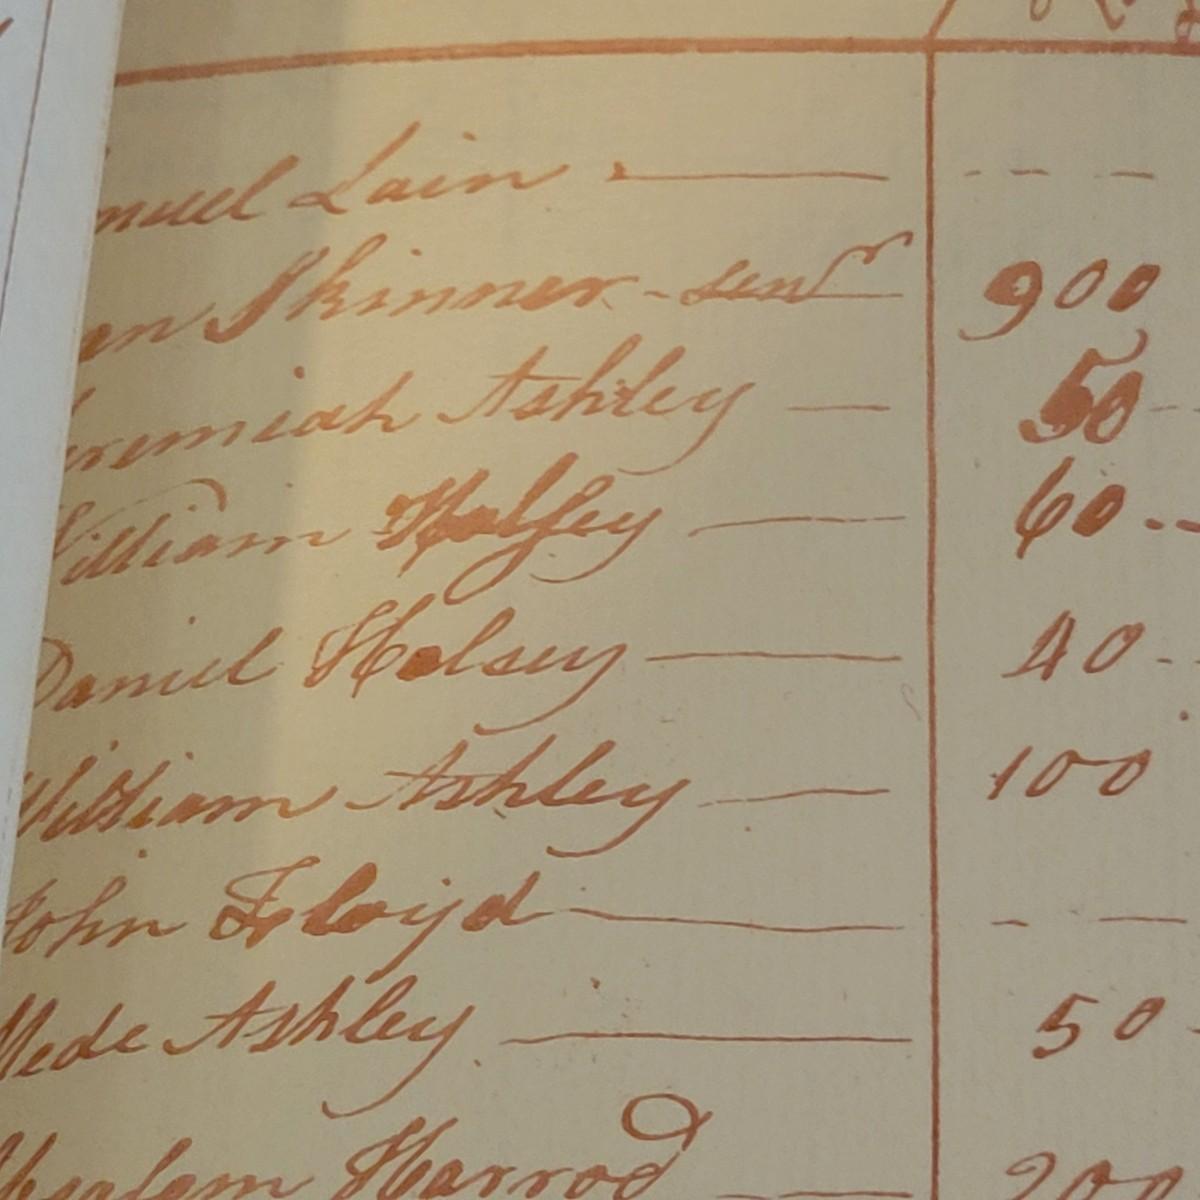 nuel Lain - - -
an Skinner - senr 900
Jeremiah Ashley 50
William Halsey 60
Daniel Halsey 40
William Ashley 100
John Floyd - -
Mede Ashley 50
Harrod 200